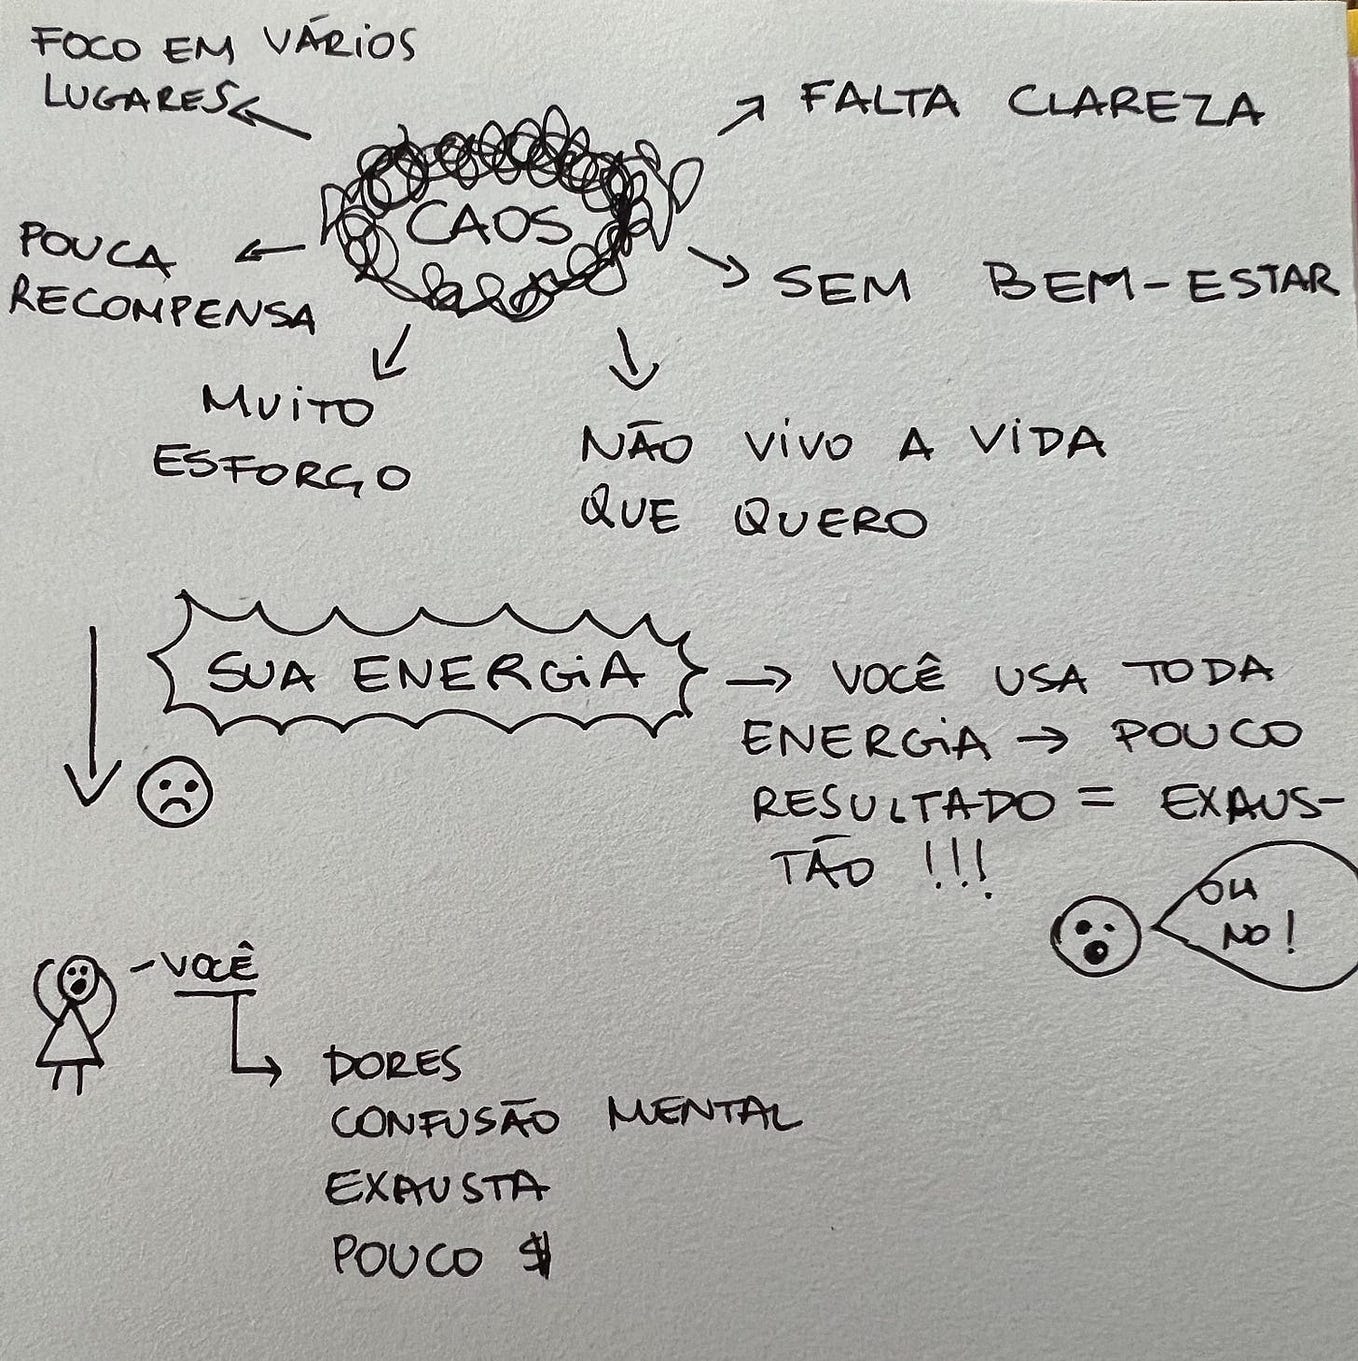 FOCO EM VÁRIOS
LUGARES
FALTA CLAREZA
CAOS
POUCA
RECOMPENSA
SEM BEM-ESTAR
MUITO
ESFORÇO
NÃO VIVO A VIDA
QUE QUERO
SUA ENERGIA
→ VOCÊ USA TODA
ENERGIA → POUCO
RESULTADO = EXAUS-
TÃO !!!
OH
NO!
- VOCÊ
DORES
CONFUSÃO MENTAL
EXAUSTA
POUCO $